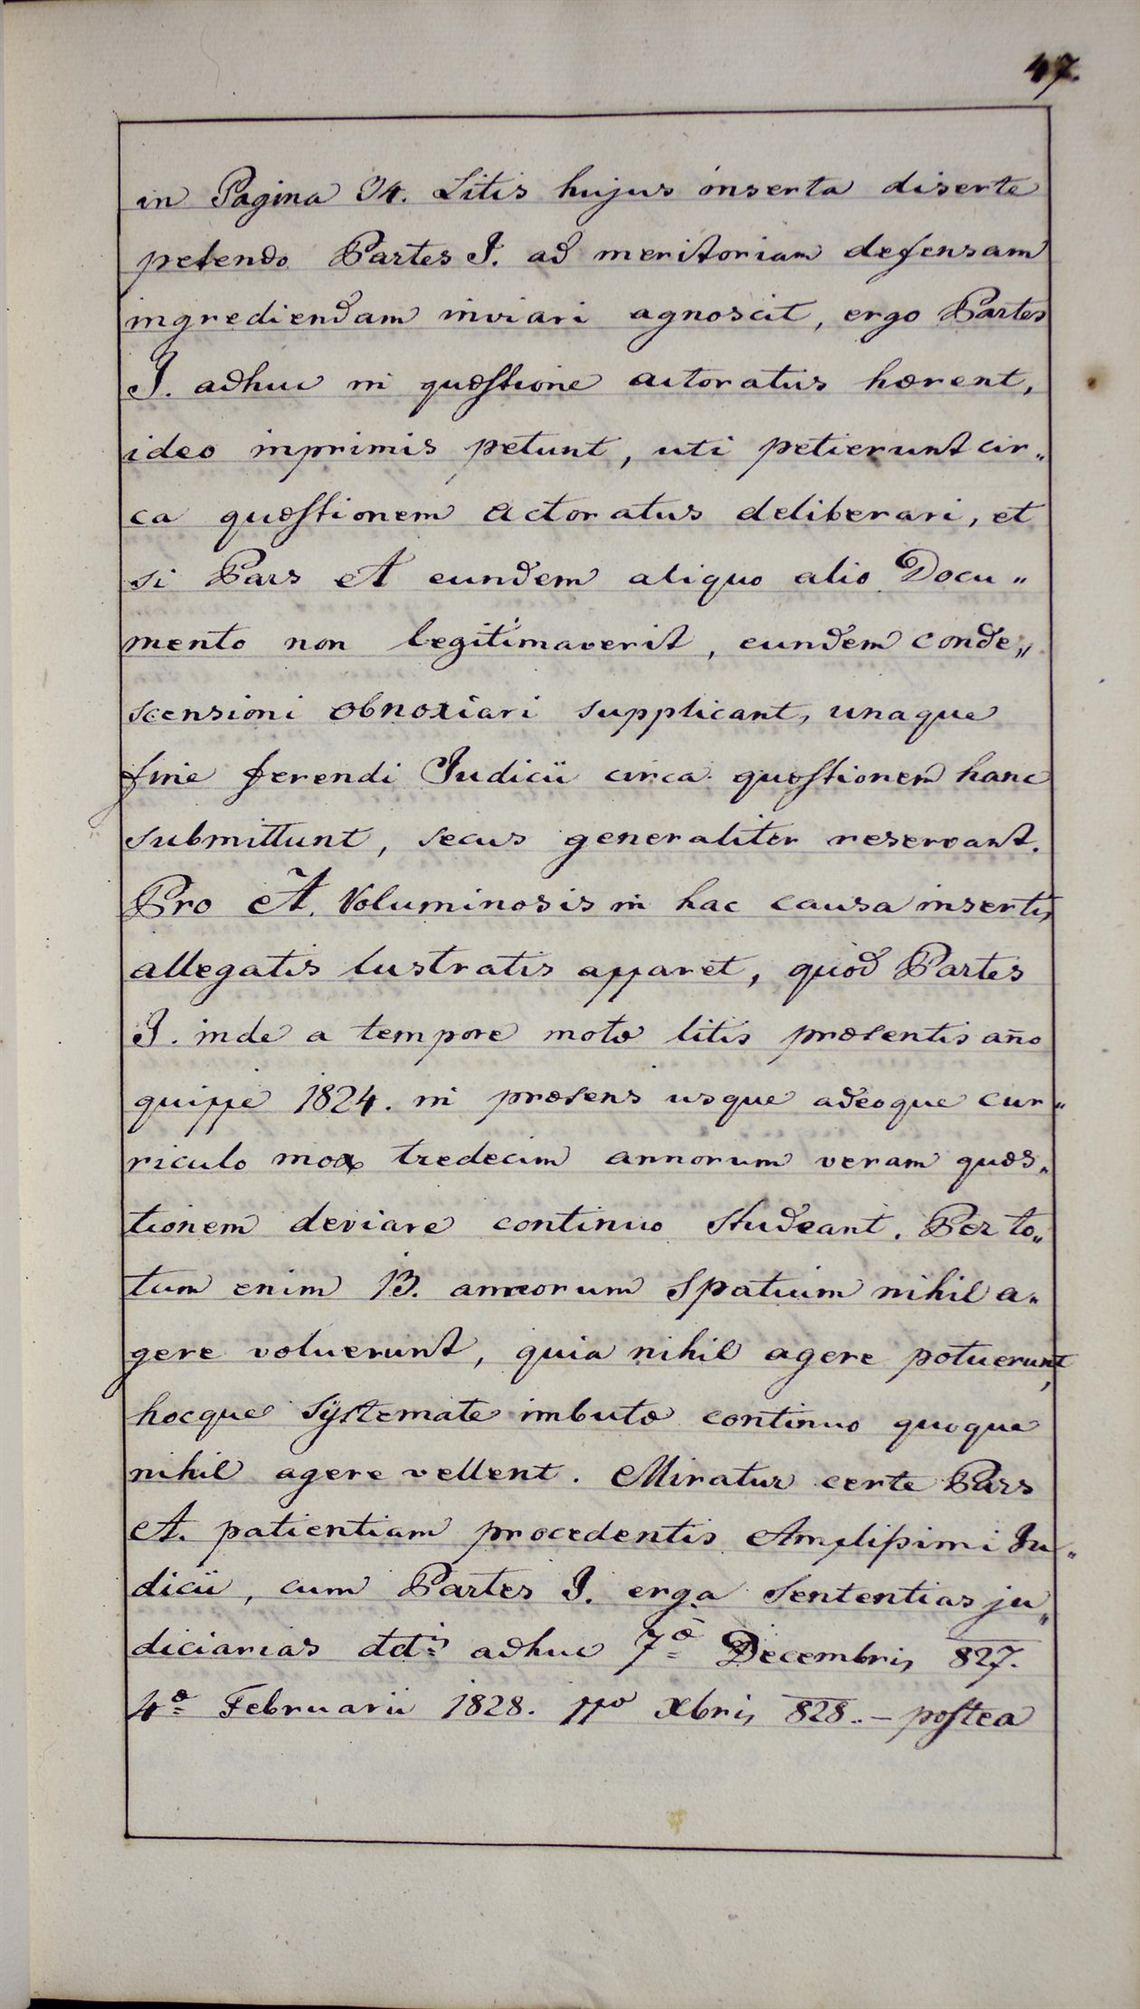 47.
in Pagina 34. Litis hujus inserta diserte
petendo Partes I. ad meritoriam defensam
ingrediendam inviari agnoscit, ergo Partes
I. adhuc in quæstione actoratus hærent,
ideo inprimis petunt, uti petierunt cir„
ca quæstionem actoratus deliberari, et
si Pars A eundem aliquo alio Docu„
mento non legitimaverit, eundem conde„
scensioni obnoxiari supplicant, unaque
fine ferendi Judicii circa quæstionem hanc
submittunt, secus generaliter reservant.
Pro A. Voluminosis in hac causa insertis
allegatis lustratis apparet, quod Partes
I. inde a tempore motæ litis præsentis año
quippe 1824. in præsens usque adeoque cur„
riculo mox tredecim annorum veram quæs„
tionem deviare continuo studeant. Per to„
tum enim 13. annorum spatium nihil a„
gere voluerunt, quia nihil agere potuerunt,
hocque systemate imbutæ continuo quoque
nihil agere vellent. Miratur certe Pars
A. patientiam procedentis Amplissimi Ju„
dicii, cum Partes I. erga sententias ju„
diciarias ddtis adhuc 7a Decembris 827.
4a Februarii 1828. 11o Xbris 828. – postea